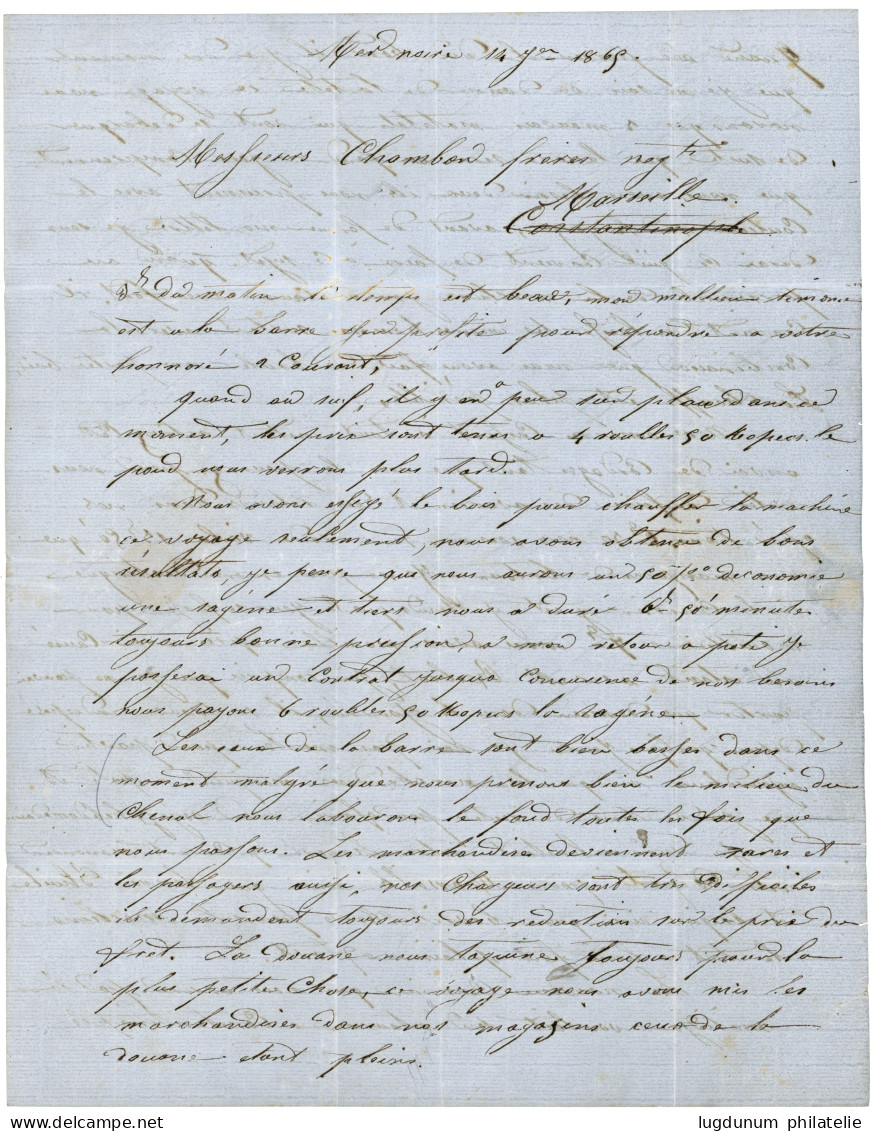 Mer noire 14 7bre 1865.
Messieurs Chambon freres negts
Marseille
Constantinople
3h du matin le temps est beau, mon meilleur timonier
est a la barre j'en profite pour répondre a votre
honnoré 2 Courant,
quand au suif, il y en a peu sur place dans ce
moment, les prix sont tenus a 4 roubles 50 Kopecs le
poud nous verrons plus tard.
Nous avons essayé le bois pour chauffer la machine
ce voyage seulement, nous avons obtenu de bons
résultats, je pense que nous aurons un 50 % d'economie
une sagéne et tiers nous a duré 6h 50' minute
toujours bonne pression, a mon retour a poti je
passerai un contrat jusqua concurence de nos besoins
nous payons 6 roubles 50 Kopecs la sagene
Les eaux de la barre sont bien basses dans ce
moment malgré que nous prenons bien le milieu du
Chenal nous labourons le fond toutes les fois que
nous passons. Les marchandises deviennent rares et
les passagers aussi, nos Chargeurs sont tres difficiles
ils demandent toujours des reduction sur le prix du
fret. La Douane nous taquine toujours pour la
plus petite Chose, ce voyage nous avons mis les
marchandises dans nos magasins ceux de la
douane etant pleins.
lugdunum philatelie